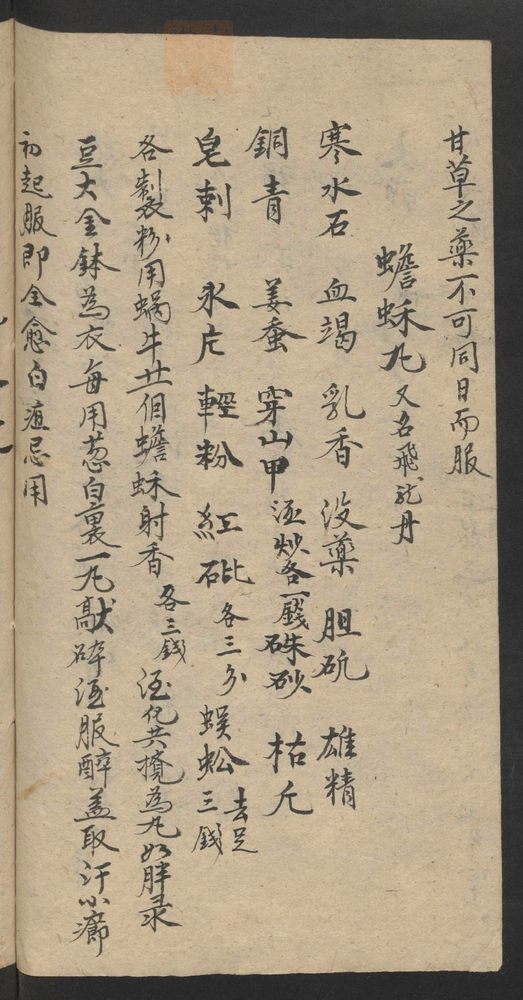 甘草之藥不可同日而服
蟾蘇丸又名飛龙丹
寒水石 血竭 乳香 没藥 胆矾 雄精
銅青 姜蚕 穿山甲 酒炒各一錢 硃砂 枯凡
皂刺 氷片 輕粉 紅砒 各三分 蜈蚣 去足 三錢
各製粉用蝸牛廿一個蟾蘇射香各三錢酒化共攪為丸如胖录
豆大金銇為衣每用葱白裏一丸㪣碎酒服醉盖取汗小癤
初起服即全愈白疽忌用